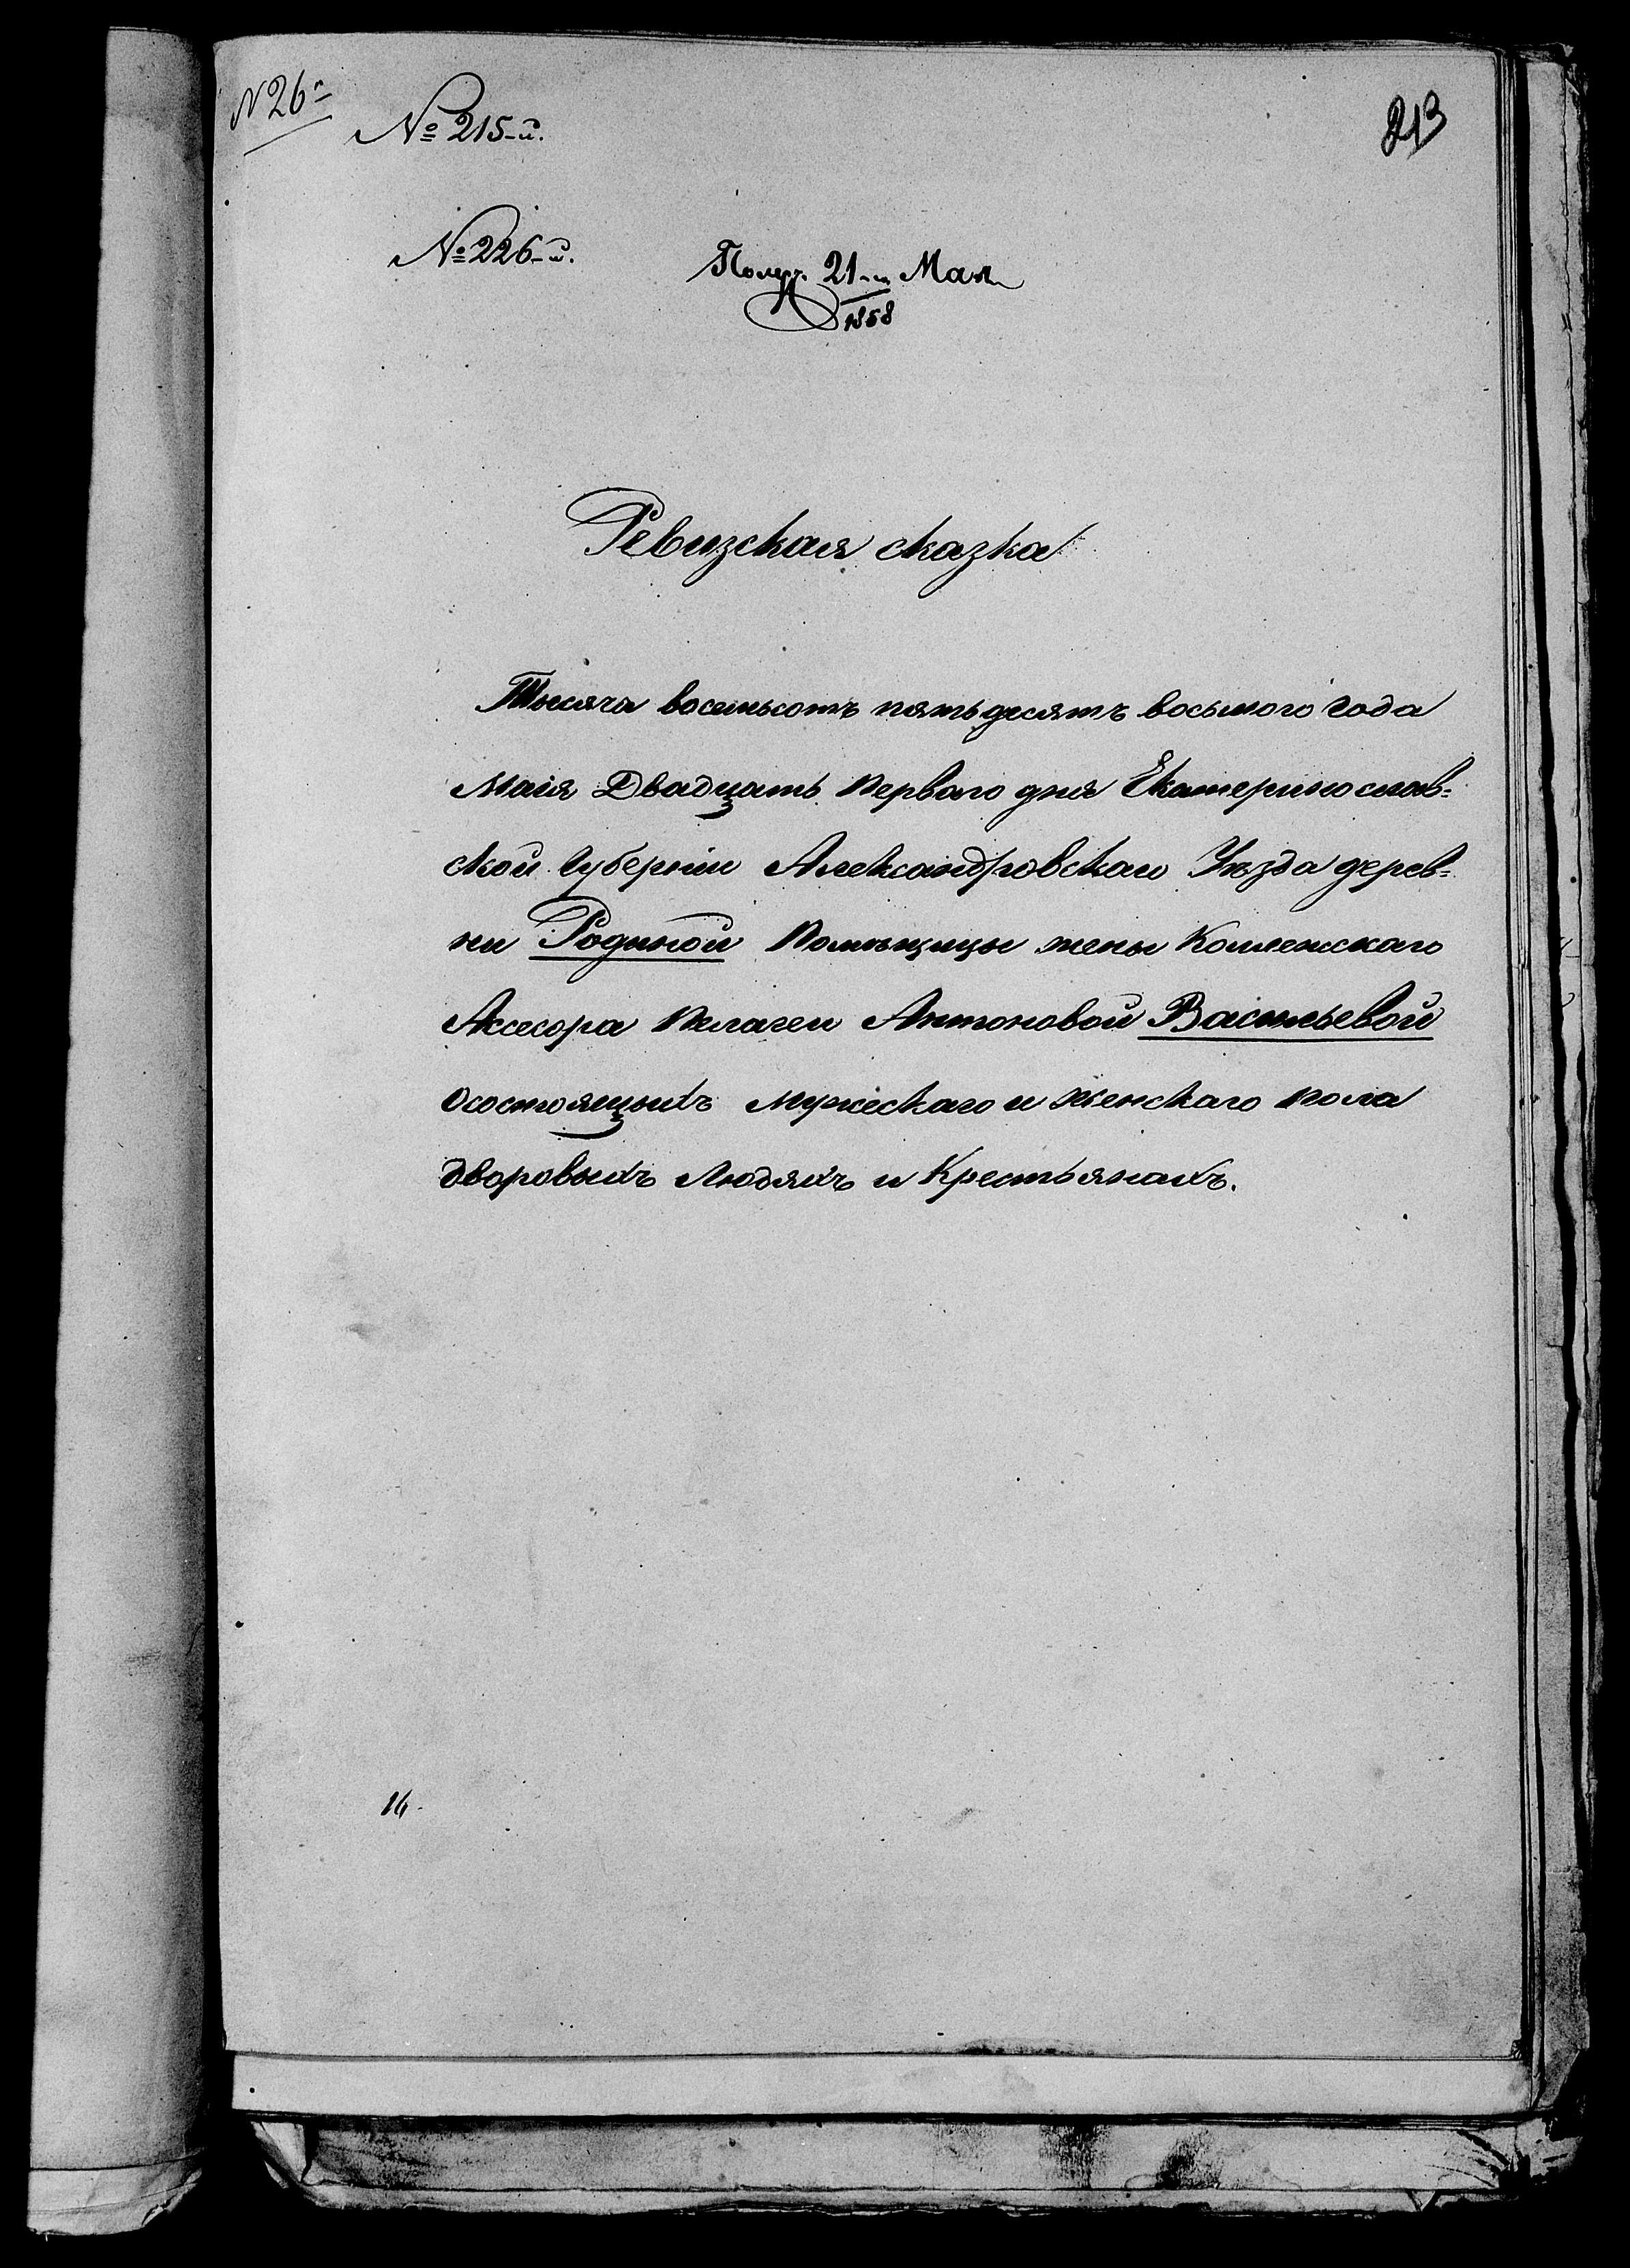 N 26й
№ 215-й.
213
№ 226-й.
Получ. 21-го Мая
1858
Ревизская сказка
Тысяча восемьсотъ пятьдесятъ восьмого года
Маія Двадцать Первого дня Екатеринослав=
ской Губерніи Александровскаго Уѣзда дерев=
ни Родиной Помѣщицы жены Коллежскаго
Асесора Пелагеи Антоновой Васильевой
Осостоящыхъ Мужескаго и женскаго пола
дворовыхъ Людяхъ и Крестьянахъ.